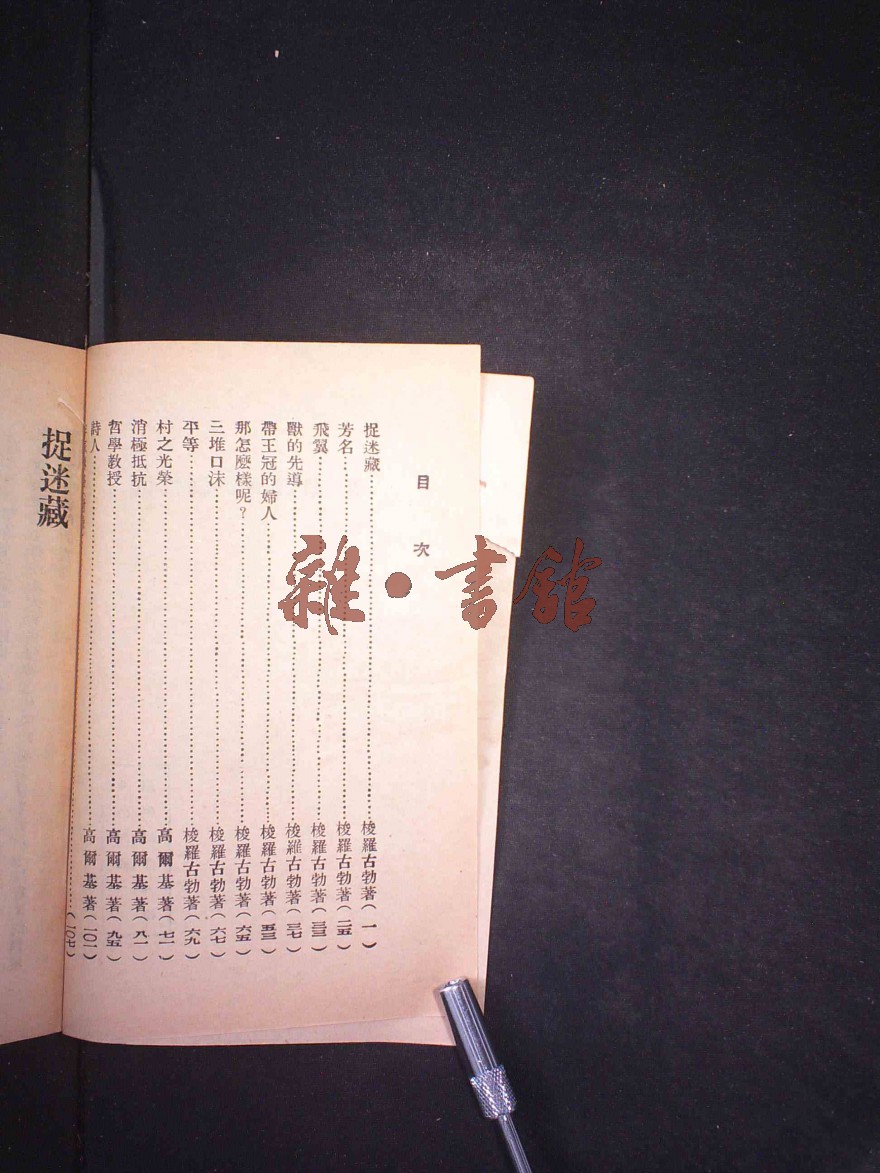 目次
捉迷藏……梭羅古勃著(一)
芳名……梭羅古勃著(二五)
飛翼……梭羅古勃著(三三)
獸的先導……梭羅古勃著(三七)
帶王冠的婦人……梭羅古勃著(五三)
那怎麼樣呢?……梭羅古勃著(六五)
三堆口沫……梭羅古勃著(六七)
平等……梭羅古勃著(六九)
村之光榮……高爾基著(七一)
消極抵抗……高爾基著(八一)
哲學教授……高爾基著(九五)
詩人……高爾基著(一〇一)
……(一〇七)
捉迷藏
雜·書館